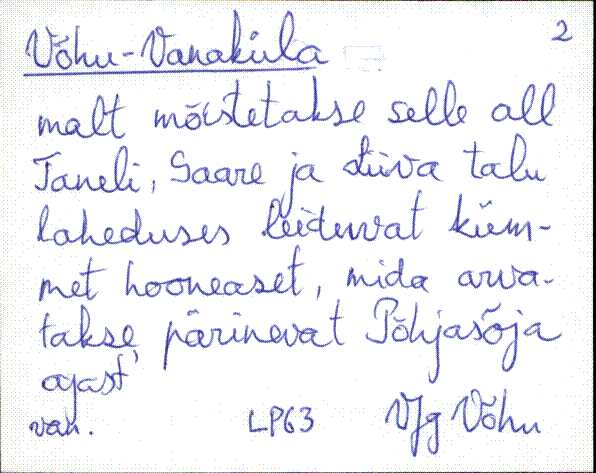 Võhu-Vanaküla 2
malt mõistetakse selle all
Taneli, Saare ja Liiva talu
laheduses leiduvat küm-
met hooneaset, mida arva-
takse pärinevat Põhjasõja
ajast
van. LP63 Vjg Võhu